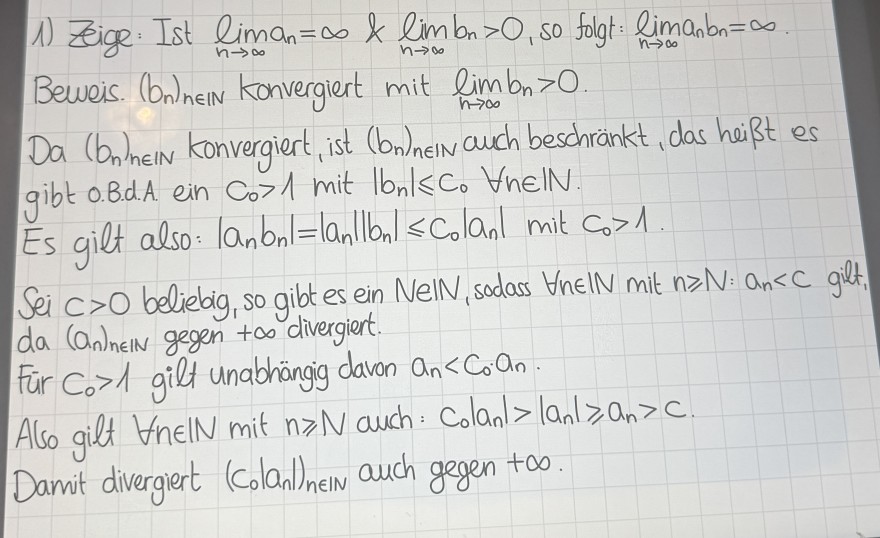 1) Zeige: Ist lim an = ∞ & lim bn > 0, so folgt: lim anbn = ∞.
n→∞ n→∞ n→∞
Beweis. (bn)n∈ℕ konvergiert mit lim bn > 0.
n→∞
Da (bn)n∈ℕ konvergiert, ist (bn)n∈ℕ auch beschränkt, das heißt es
gibt o.B.d.A. ein C₀>1 mit |bn| ≤ C₀ ∀n∈ℕ.
Es gilt also: |anbn| = |an||bn| ≤ C₀|an| mit C₀>1.
Sei C>0 beliebig, so gibt es ein N∈ℕ, sodass ∀n∈ℕ mit n≥N: an<C gilt,
da (an)n∈ℕ gegen +∞ divergiert.
Für C₀>1 gilt unabhängig davon an < C₀·an.
Also gilt ∀n∈ℕ mit n≥N auch: C₀|an| > |an| ≥ an > C.
Damit divergiert (C₀|an|)n∈ℕ auch gegen +∞.